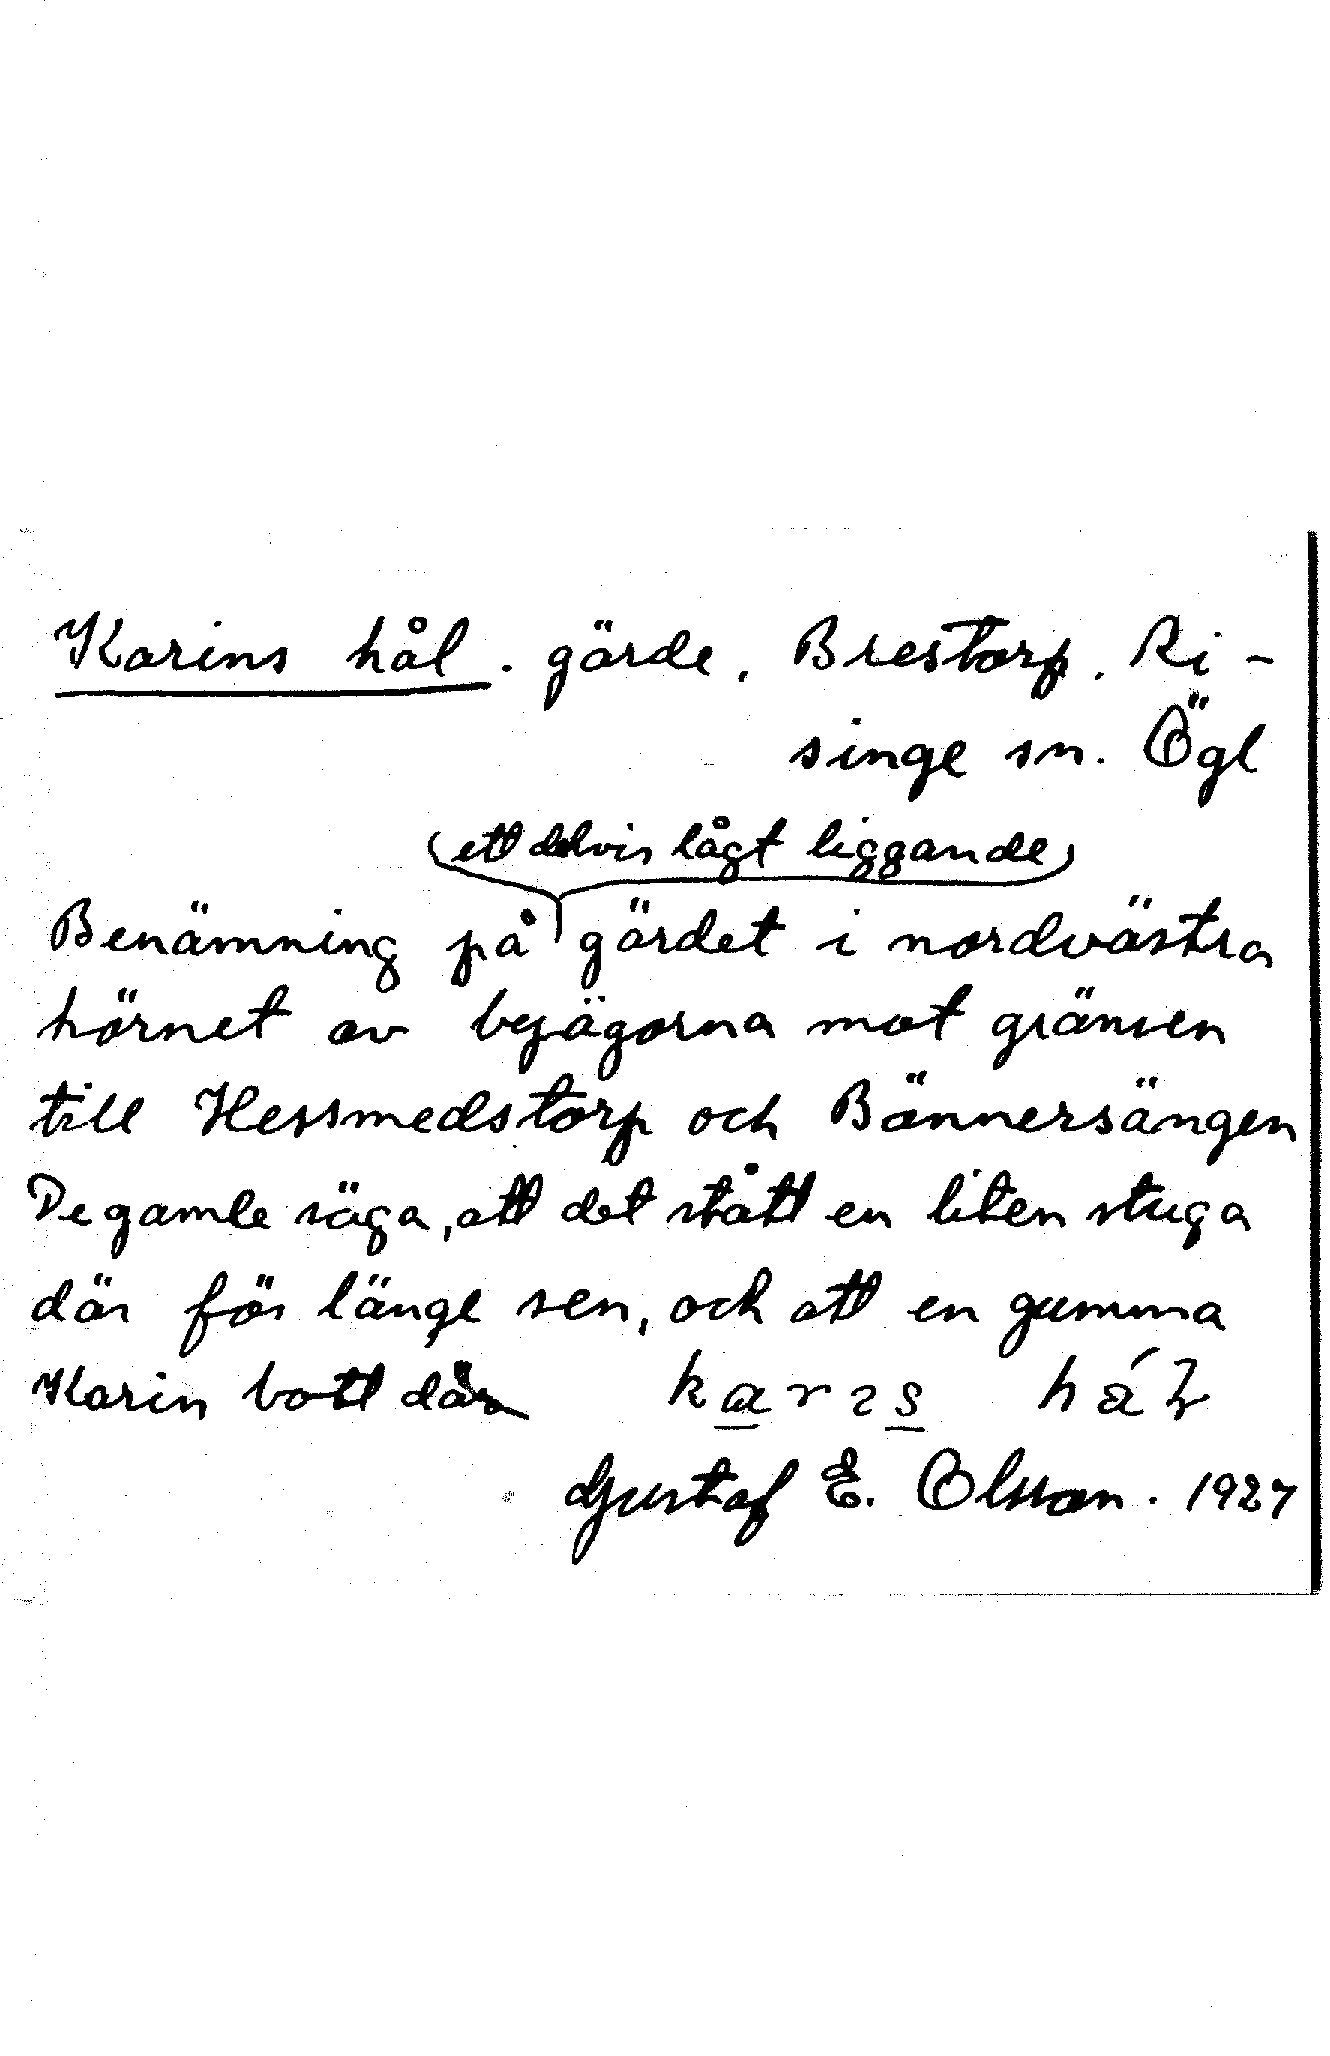 Karins hål. gärde. Brestorp. Ri-
singe sn. Ögl
(ett delvis lågt liggande)
Benämning på gärdet i nordvästra
hörnet av byägorna mot gränsen
till Hessmedstorp och Bännersängen
De gamle säga, att det stått en liten stuga
där för länge sen, och att en gumma
Karin bott där
Gustaf E. Olsson. 1927